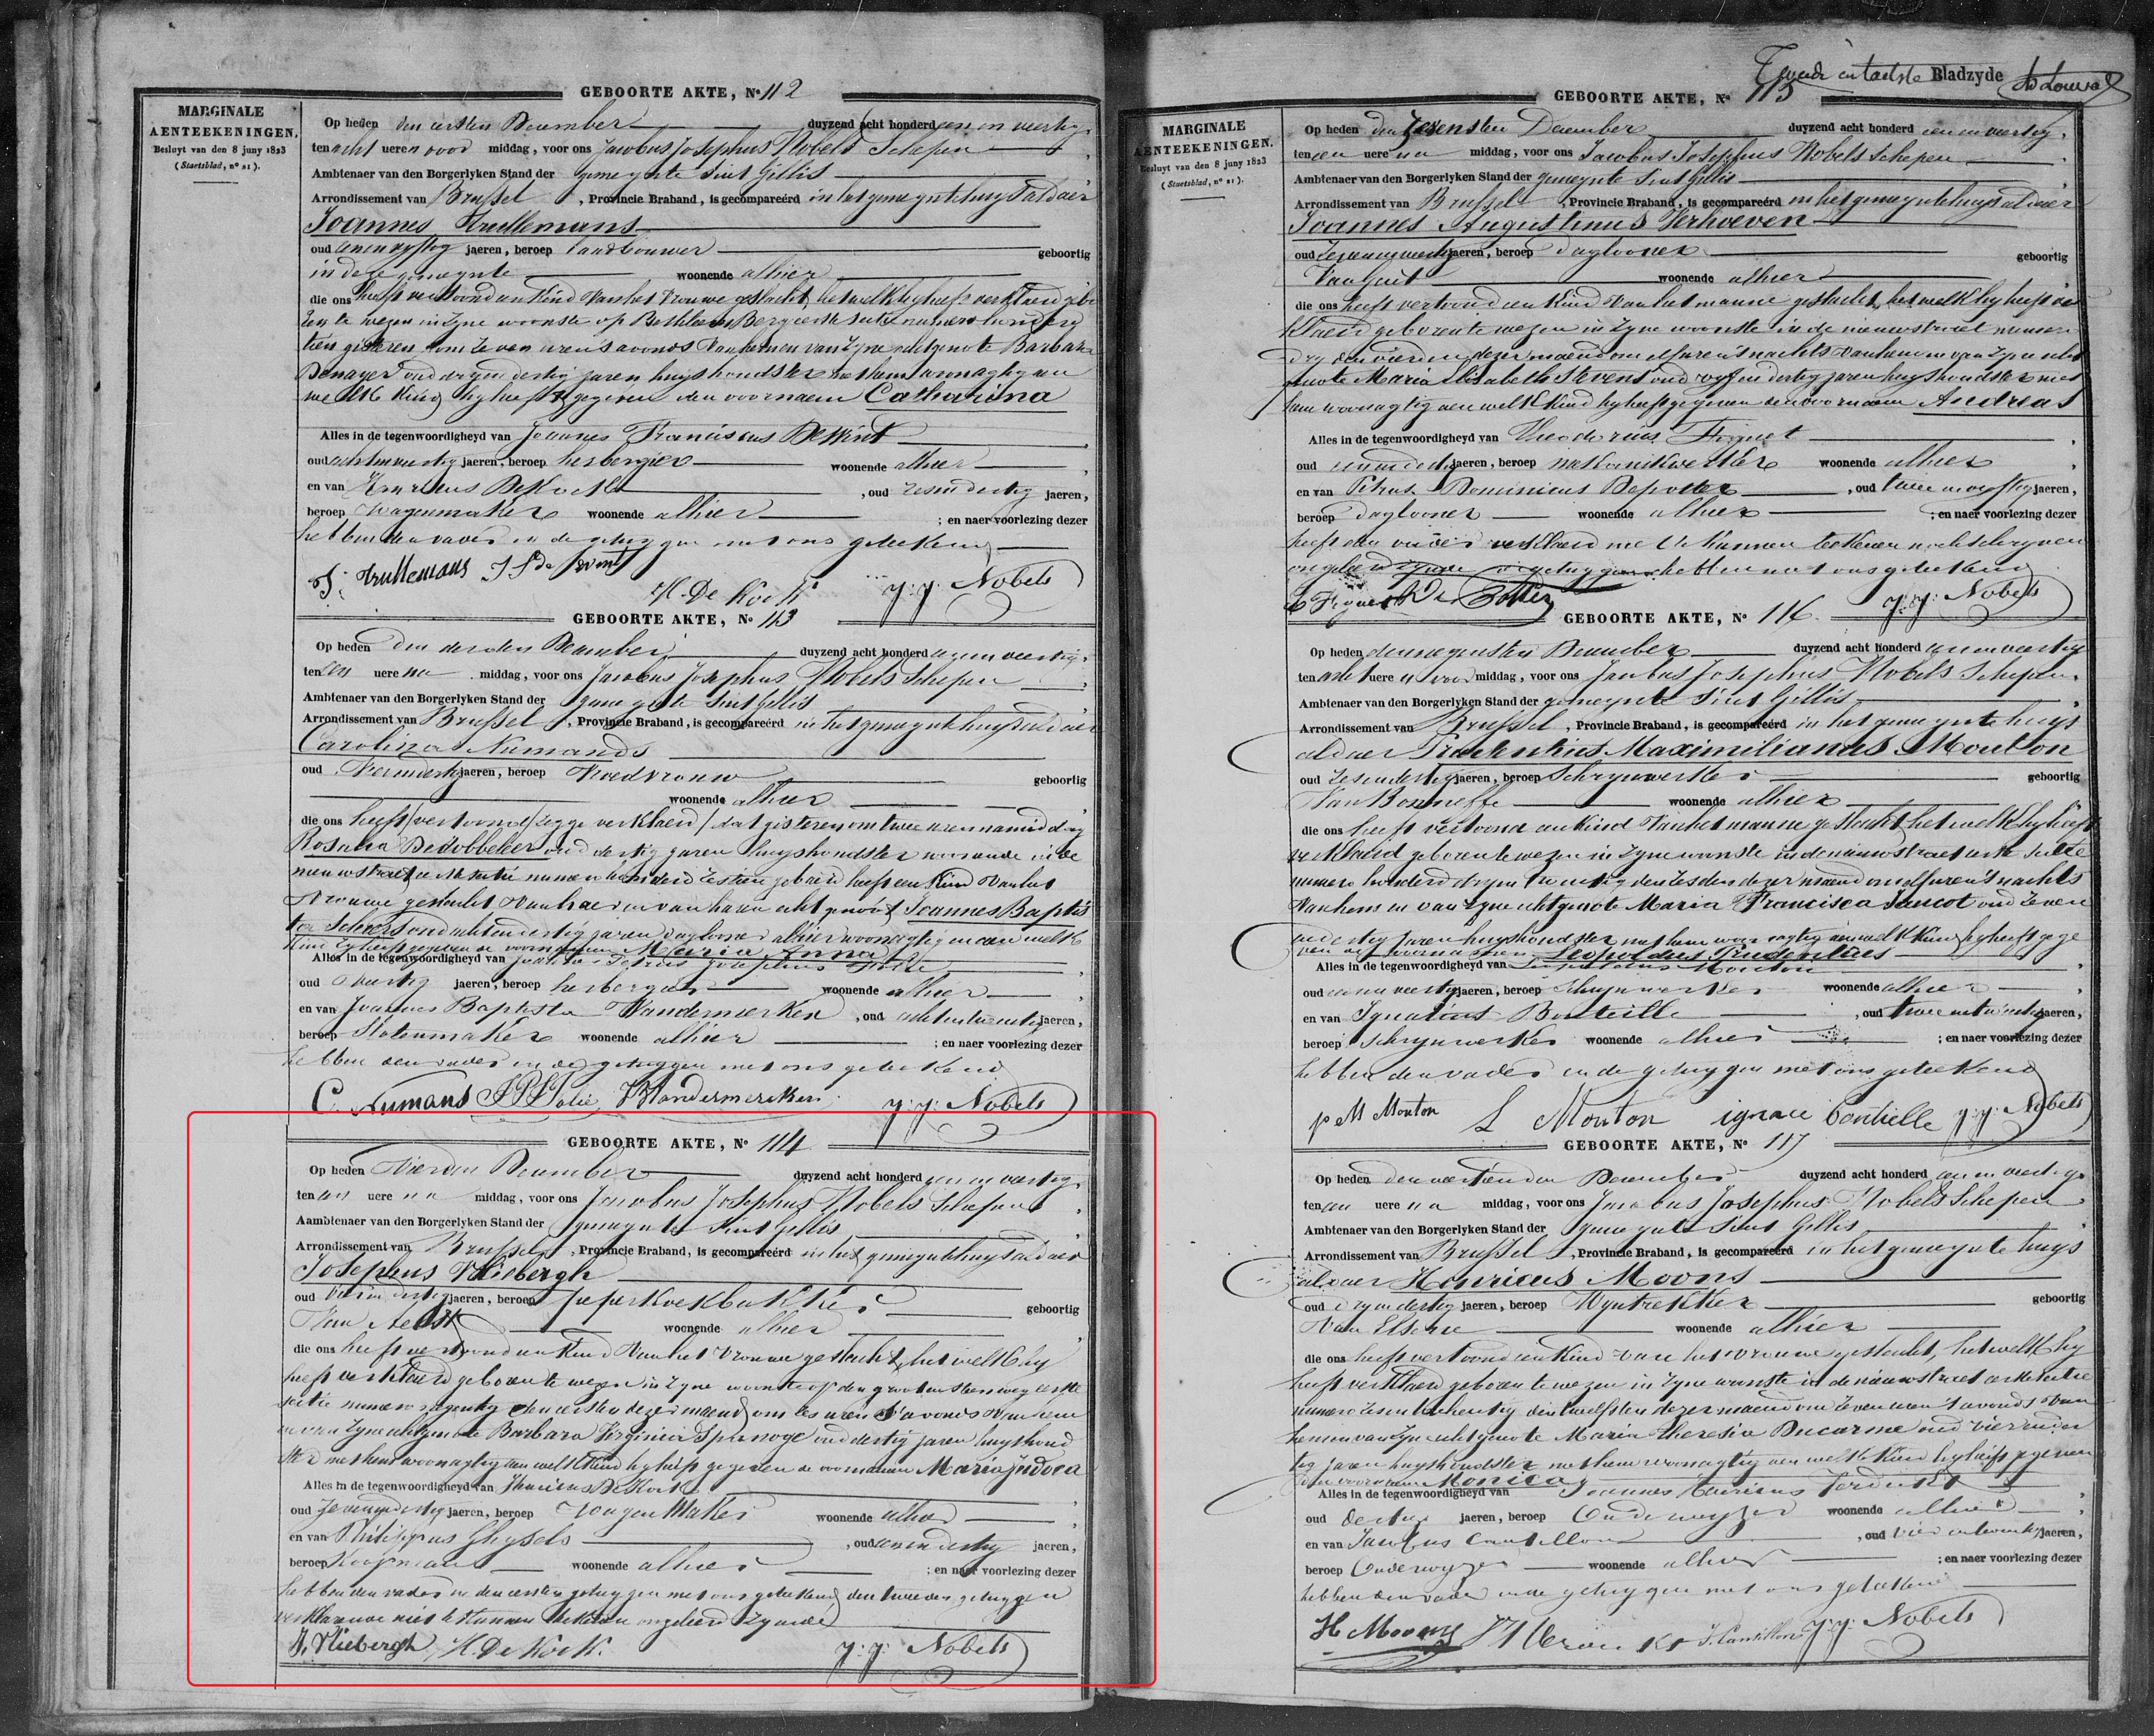 MARGINALE
AENTEEKENINGEN.
Besluyt van den 8 juny 1823
(Staetsblad, nº 21).
GEBOORTE AKTE, Nº 112
Op heden den eersten December duyzend acht honderd een en veertig,
ten acht ueren voor middag, voor ons Jacobus Josephus Nobels Schepen
Ambtenaer van den Borgerlyken Stand der gemeynte Sint Gillis
Arrondissement van Brussel, Provincie Braband, is gecompareérd in het gemeynte huys aldaer
Joannes Trullemans
oud jaeren, beroep Landbouwer geboortig
in deze gemeynte woonende alhier
die ons heeft vertoond een Kind van het vrouwe geslacht, het welk hy heeft verklaerd gebo
ren te wezen in zyne woonste op Bethleem Berg eerste sectie numero honderd
tien gisteren om zeven uren s'avonds van hem en van zyne echtgenote Barbara
Denayer oud dry en dertig jaren huyshoudster met hem woonagtig aen
welk Kind hy heeft gegeven den voornaem Catharina
Alles in de tegenwoordigheyd van Joannes Franciscus De Wint
oud acht en veertig jaeren, beroep herbergier woonende alhier
en van Henricus De Kock, oud zes en dertig jaeren,
beroep Wagenmaker woonende alhier ; en naer voorlezing dezer
hebben den vader en de getuygen met ons geteekend
J: Trullemans J F de wint
H. De Kock J: J: Nobels
GEBOORTE AKTE, Nº 113
Op heden den derden December duyzend acht honderd een en veertig,
ten een uere na middag, voor ons Jacobus Josephus Nobels Schepen
Ambtenaer van den Borgerlyken Stand der gemeynte Sint Gillis
Arrondissement van Brussel, Provincie Braband, is gecompareérd in het gemeynte huys aldaer
Carolina Numans
oud jaeren, beroep Vroedvrouw geboortig
woonende alhier
die ons heeft (vertoond) zegge verklaerd / dat gisteren om twee uren namiddag
Rosalia Dedobbeleer oud dertig jaren huyshoudster woonende in de
nieuwstraet sectie numero honderd zestien gebaerd heeft een Kind van het
Vrouwe geslacht van haer en van haren echtgenoot Joannes Baptis
ta Scheers oud acht en dertig jaren daglooner alhier woonagtig en aen welk
Kind zy heeft gegeven de voornaemen Maria Anna
Alles in de tegenwoordigheyd van Petrus Josephus
oud veertig jaeren, beroep herbergier woonende alhier
en van Joannes Baptista Vandermerken, oud acht en twintig jaeren,
beroep Stoelenmaker woonende alhier ; en naer voorlezing dezer
hebben den vader en de getuygen met ons geteekend
C. Numans JBVandermercken J: J: Nobels
GEBOORTE AKTE, Nº 114
Op heden Vierden December duyzend acht honderd een en veertig,
ten een uere na middag, voor ons Jacobus Josephus Nobels Schepen
Aambtenaer van den Borgerlyken Stand der gemeynte Sint Gillis
Arrondissement van Brussel, Provincie Braband, is gecompareérd in het gemeynte huys aldaer
Josephus Vliebergh
oud vier en dertig jaeren, beroep Peperkoekbakker geboortig
Van Aelst woonende alhier
die ons heeft vertoond een Kind van het Vrouwe geslacht, het welk hy
heeft verklaerd geboren te wezen in zyne woonste op den grooten steenweg eerste
sectie numero negentig den eersten dezer maend om zes uren s'avonds van hem
en van zyne echtgenote Barbara Virginia Spanoge oud dertig jaren huyshoud
ster met hem woonagtig aen welk Kind hy heeft gegeven de voornamen Maria Judoca
Alles in de tegenwoordigheyd van Henricus De Kock
oud zeven en dertig jaeren, beroep Wagenmaker woonende alhier
en van Philippus Ghysels, oud een en dertig jaeren,
beroep Koopman woonende alhier ; en naer voorlezing dezer
hebben den vader en den eersten getuygen met ons geteekend den tweeden getuygen
verklarende niet te kunnen teekenen ongeleerd zynde
J. Vliebergh H. De Kock. J: J: Nobels
Tweede en laetste Bladzyde
MARGINALE
AENTEEKENINGEN.
Besluyt van den 8 juny 1823
(Staetsblad, nº 21).
GEBOORTE AKTE, Nº 115
Op heden den Zevensten December duyzend acht honderd een en veertig,
ten een uere na middag, voor ons Jacobus Josephus Nobels Schepen
Ambtenaer van den Borgerlyken Stand der gemeynte Sint Gillis
Arrondissement van Brussel, Provincie Braband, is gecompareérd in het gemeynte huys aldaer
Joannes Augustinus Verhoeven
oud jaeren, beroep daglooner geboortig
Van woonende alhier
die ons heeft vertoond een Kind van het manne geslacht, het welk hy heeft ver
klaerd geboren te wezen in zyne woonste in de nieuwstraet numero
dry den vierden dezer maend om elf uren s'nachts van hem en van zyne echt
genote Maria Elisabeth Stevens oud vyf en dertig jaren huyshoudster met
hem woonagtig aen welk Kind hy heeft gegeven den voornaem Andreas
Alles in de tegenwoordigheyd van Theodorus
oud jaeren, beroep woonende alhier
en van Petrus Dominicus Depotter, oud twee en veertig jaeren,
beroep daglooner woonende alhier ; en naer voorlezing dezer
heeft den vader verklaerd niet te kunnen teekenen noch schryven
ongeleerd zynde de getuygen hebben met ons geteekend
De Potter J: J: Nobels
GEBOORTE AKTE, Nº 116.
Op heden den negensten December duyzend acht honderd een en veertig
ten acht ueren voor middag, voor ons Jacobus Josephus Nobels Schepen
Ambtenaer van den Borgerlyken Stand der gemeynte Sint Gillis
Arrondissement van Brussel, Provincie Braband, is gecompareérd in het gemeynte huys
aldaer Prudentius Maximilianus Mouton
oud zes en dertig jaeren, beroep Schrynwerker geboortig
Van Bonneffe woonende alhier
die ons heeft vertoond een Kind van het manne geslacht het welk hy heeft
verklaerd geboren te wezen in zyne woonste in de nieuwstraet eerste sectie
numero honderd dry en twintig den zesden dezer maend om elf uren s'nachts
van hem en van zyne echtgenote Maria Francisca oud zeven
en dertig jaren huyshoudster met hem woonagtig aen welk Kind hy heeft gege
ven de voornaemen Leopoldus Prudentius
Alles in de tegenwoordigheyd van Mouton
oud jaeren, beroep Schrynwerker woonende alhier
en van Ignatius Bouteille, oud twee en twintig jaeren,
beroep Schrynwerker woonende alhier ; en naer voorlezing dezer
hebben den vader en de getuygen met ons geteekend
p M Mouton L Mouton ignace bouteille J: J: Nobels
GEBOORTE AKTE, Nº 117
Op heden den veertienden December duyzend acht honderd een en veertig,
ten een uere na middag, voor ons Jacobus Josephus Nobels Schepen
Ambtenaer van den Borgerlyken Stand der gemeynte Sint Gillis
Arrondissement van Brussel, Provincie Braband, is gecompareérd in het gemeynte huys
aldaer Henricus Moons
oud dry en dertig jaeren, beroep Wyntrekker geboortig
Van Elsene woonende alhier
die ons heeft vertoond een Kind van het vrouwe geslacht, het welk hy
heeft verklaerd geboren te wezen in zyne woonste in de nieuwstraet eerste sectie
numero zes en tachentig den twelfsten dezer maend om zeven uren s'avonds van
hem en van zyne echtgenote Maria Theresia Ducarme oud vier en der
tig jaren huyshoudster met hem woonagtig aen welk Kind hy heeft gegeven
den voornaem Monica
Alles in de tegenwoordigheyd van Joannes Henricus
oud dertig jaeren, beroep Onderwyzer woonende alhier
en van Jacobus Cantillon, oud vier en twintig jaeren,
beroep Onderwyzer woonende alhier ; en naer voorlezing dezer
hebben den vader en de getuygen met ons geteekend
H Moons J. Cantillon J: J: Nobels